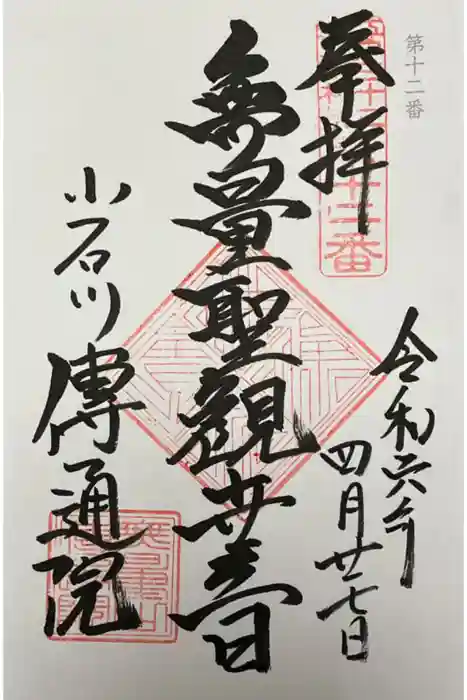 第十二番
奉拝
令和六年
四月廿七日
無量聖觀世音
小石川
傳通院